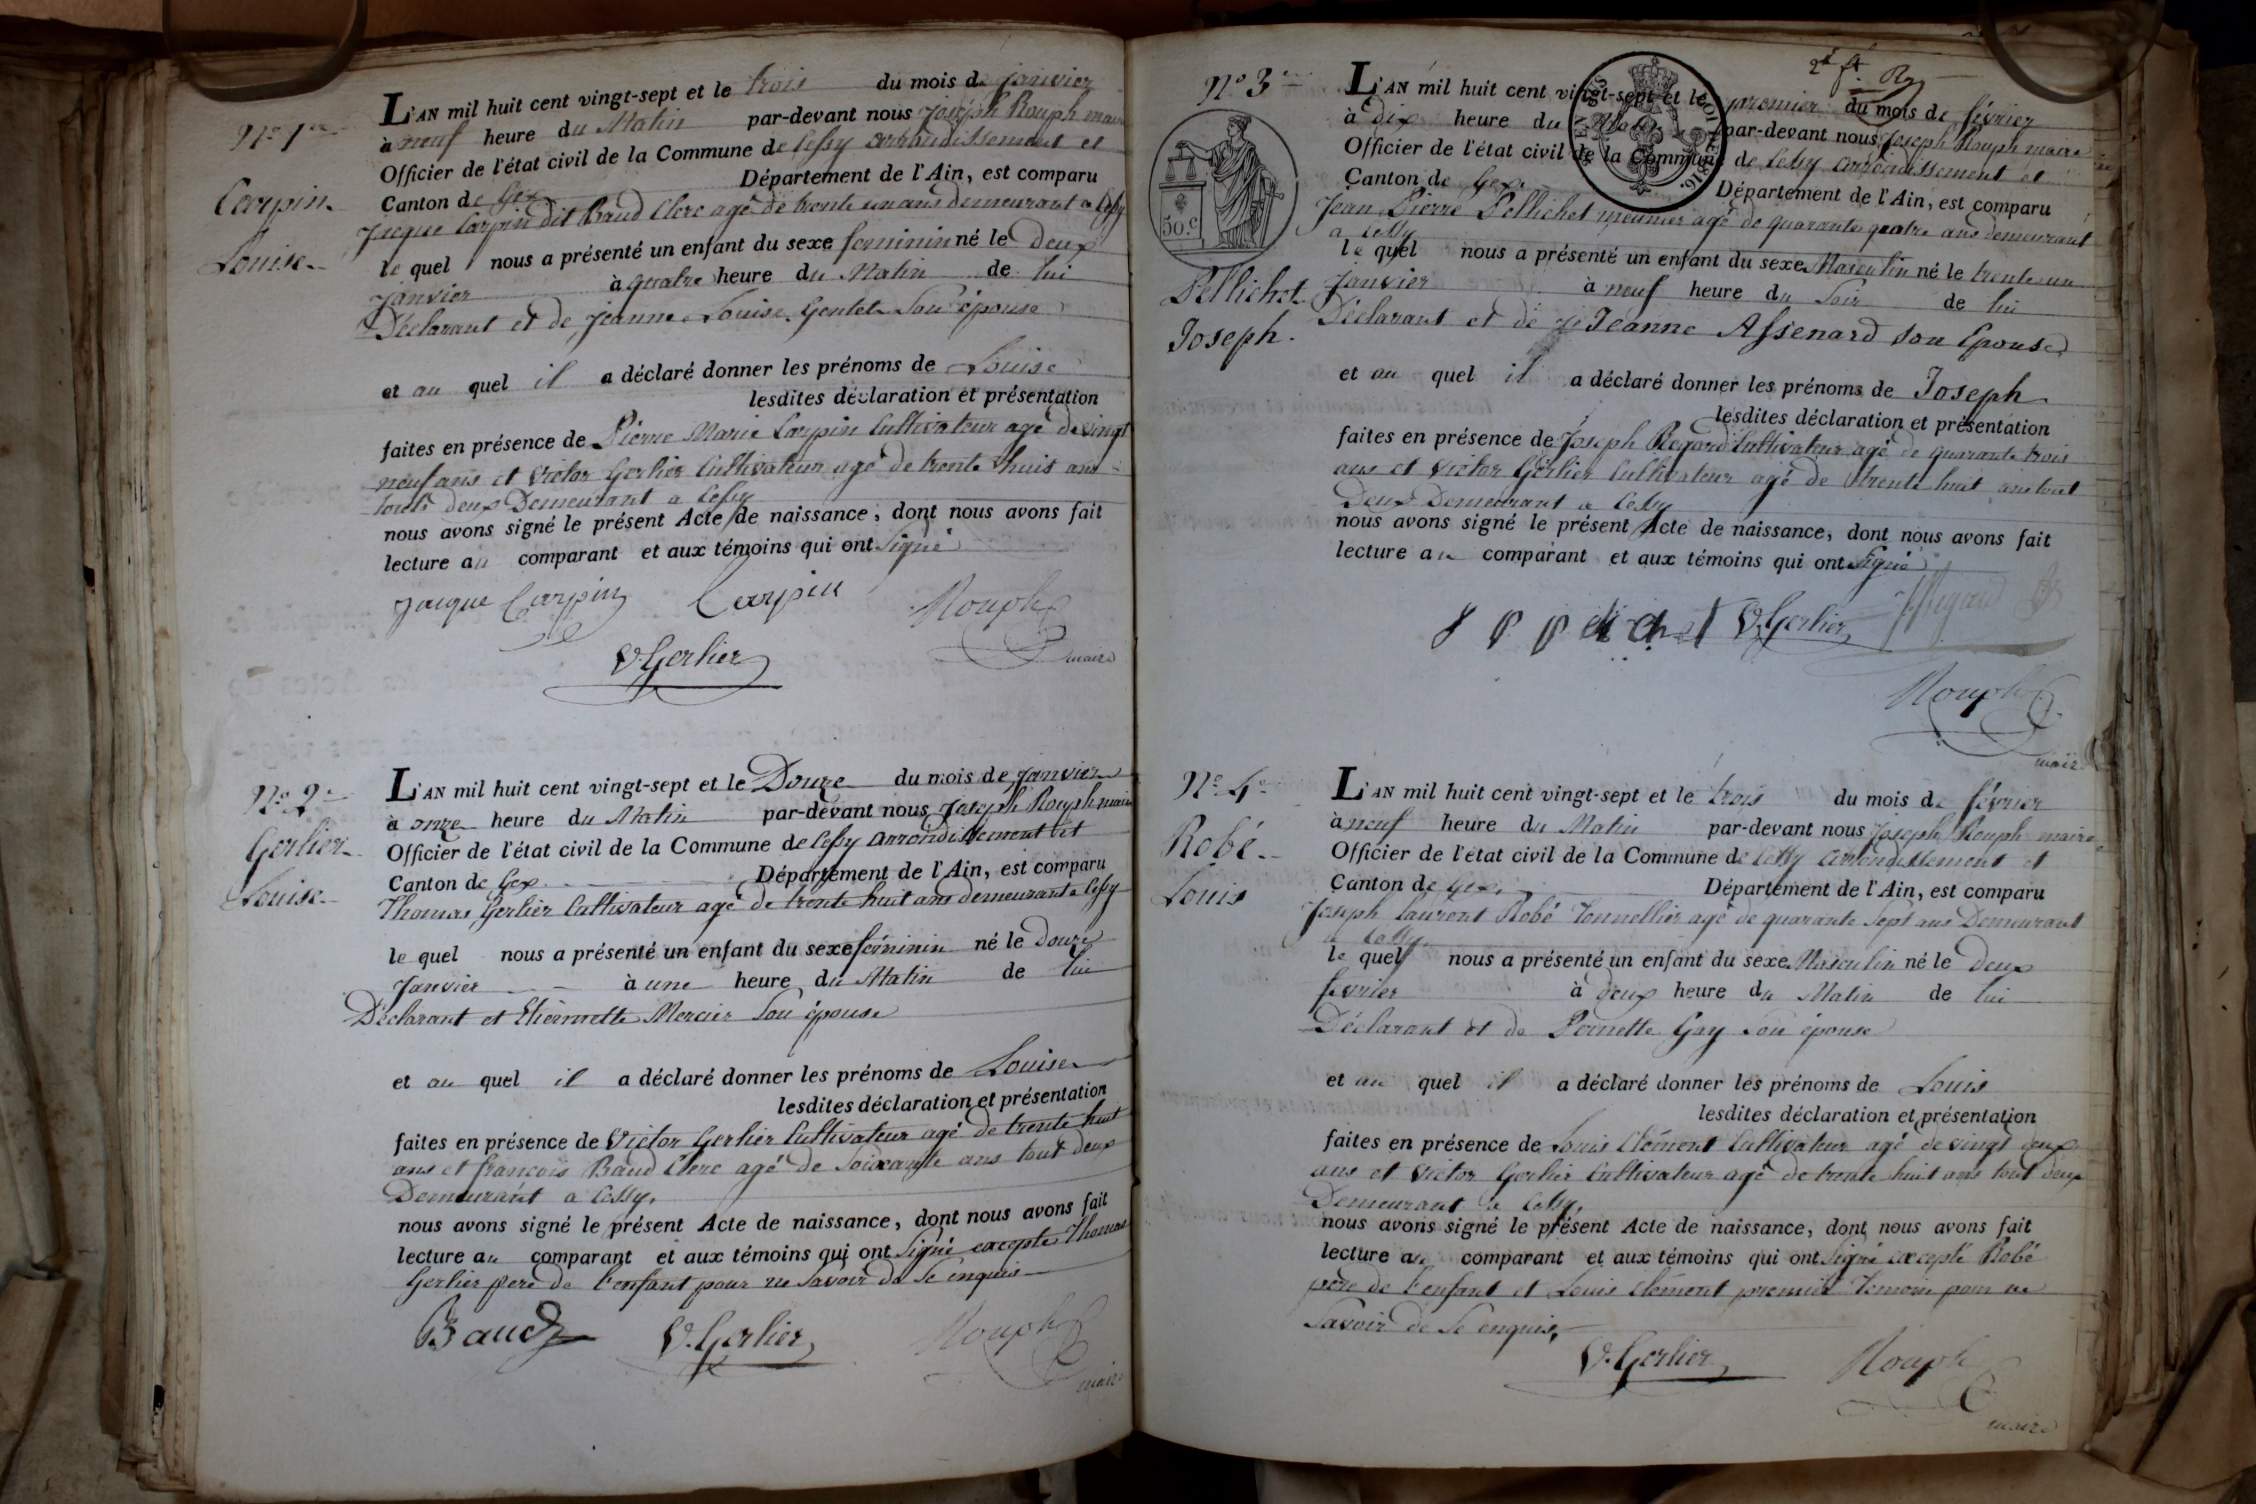 No 1er
Carpin
Louise
L'AN mil huit cent vingt-sept et le trois du mois de janvier
à neuf heure du Matin par-devant nous Joseph Rouph maire
Officier de l'état civil de la Commune de Cessy arrondissement et
Canton de Gex Département de l'Ain, est comparu
Jacque Carpin dit Baud Clerc agé de trente un ans demeurant a Cessy
le quel nous a présenté un enfant du sexe feminin né le deux
janvier à quatre heure du Matin de lui
Déclarant et de Jeanne Louise Gentet Son épouse
et au quel il a déclaré donner les prénoms de Louise
lesdites déclaration et présentation
faites en présence de Pierre Marie Carpin Cultivateur agé de vingt
neuf ans et Victor Gerlier Cultivateur agé de trente huit ans
touts deux Demeurant a Cessy
nous avons signé le présent Acte de naissance, dont nous avons fait
lecture au comparant et aux témoins qui ont Signé
Jacque Carpin Carpin Rouph
V. Gerlier maire
No 2e
Gerlier
Louise
L'AN mil huit cent vingt-sept et le Douze du mois de janvier
à onze heure du Matin par-devant nous Joseph Rouph maire
Officier de l'état civil de la Commune de Cessy arrondissement et
Canton de Gex Département de l'Ain, est comparu
Thomas Gerlier Cultivateur agé de trente huit ans demeurant a Cessy
le quel nous a présenté un enfant du sexe féminin né le douze
Janvier à une heure du Matin de lui
Déclarant et Etiennette Mercier Son épouse
et au quel il a déclaré donner les prénoms de Louise
lesdites déclaration et présentation
faites en présence de Victor Gerlier Cultivateur agé de trente huit
ans et françois Baud Clerc agé de Soixante ans tout deux
Demeurant a Cessy,
nous avons signé le présent Acte de naissance, dont nous avons fait
lecture au comparant et aux témoins qui ont Signé excepté Thomas
Gerlier pere de l'enfant pour ne Savoir de Se enquis
Baud V. Gerlier Rouph
maire
2d ft Rg
No 3e
50.c
Pellichet
Joseph.
L'AN mil huit cent vingt-sept et le premier du mois de février
à dix heure du Matin par-devant nous Joseph Rouph maire
Officier de l'état civil de la Commune de Cessy arrondissement et
Canton de Gex. Département de l'Ain, est comparu
LOI DE 1816.
Jean Pierre Pellichet meunier agé de quarante quatre ans demeurant
a Cessy
le quel nous a présenté un enfant du sexe Masculin né le trente un
Janvier à neuf heure du Soir de lui
Déclarant et de Jeanne Assenard son Epouse
et au quel il a déclaré donner les prénoms de Joseph
lesdites déclaration et présentation
faites en présence de Joseph Regard Cultivateur agé de quarante trois
ans et Victor Gerlier Cultivateur agé de trente huit ans tout
Deux Demeurant a Cessy
nous avons signé le présent Acte de naissance, dont nous avons fait
lecture au comparant et aux témoins qui ont Signé
V. Gerlier J. Regard
Rouph
maire
No 4e
Robé
Louis
L'AN mil huit cent vingt-sept et le trois du mois de février
à neuf heure du Matin par-devant nous Joseph Rouph maire
Officier de l'état civil de la Commune de Cessy arrondissement et
Canton de Gex, Département de l'Ain, est comparu
Joseph Laurent Robé Tonnellier agé de quarante Sept ans Demeurant
a Cessy
le quel nous a présenté un enfant du sexe Masculin né le Deux
fevrier à deux heure du Matin de lui
Déclarant et de Pernette Gay Son épouse
et au quel il a déclaré donner les prénoms de Louis
lesdites déclaration et présentation
faites en présence de Louis Clément Cultivateur agé de vingt deux
ans et Victor Gerlier Cultivateur agé de trente huit ans tout deux
Demeurant a Cessy,
nous avons signé le présent Acte de naissance, dont nous avons fait
lecture au comparant et aux témoins qui ont Signé excepté Robé
pere de l'enfant et Louis Clément premier Temoin pour ne
Savoir de Se enquis,
V. Gerlier Rouph
maire